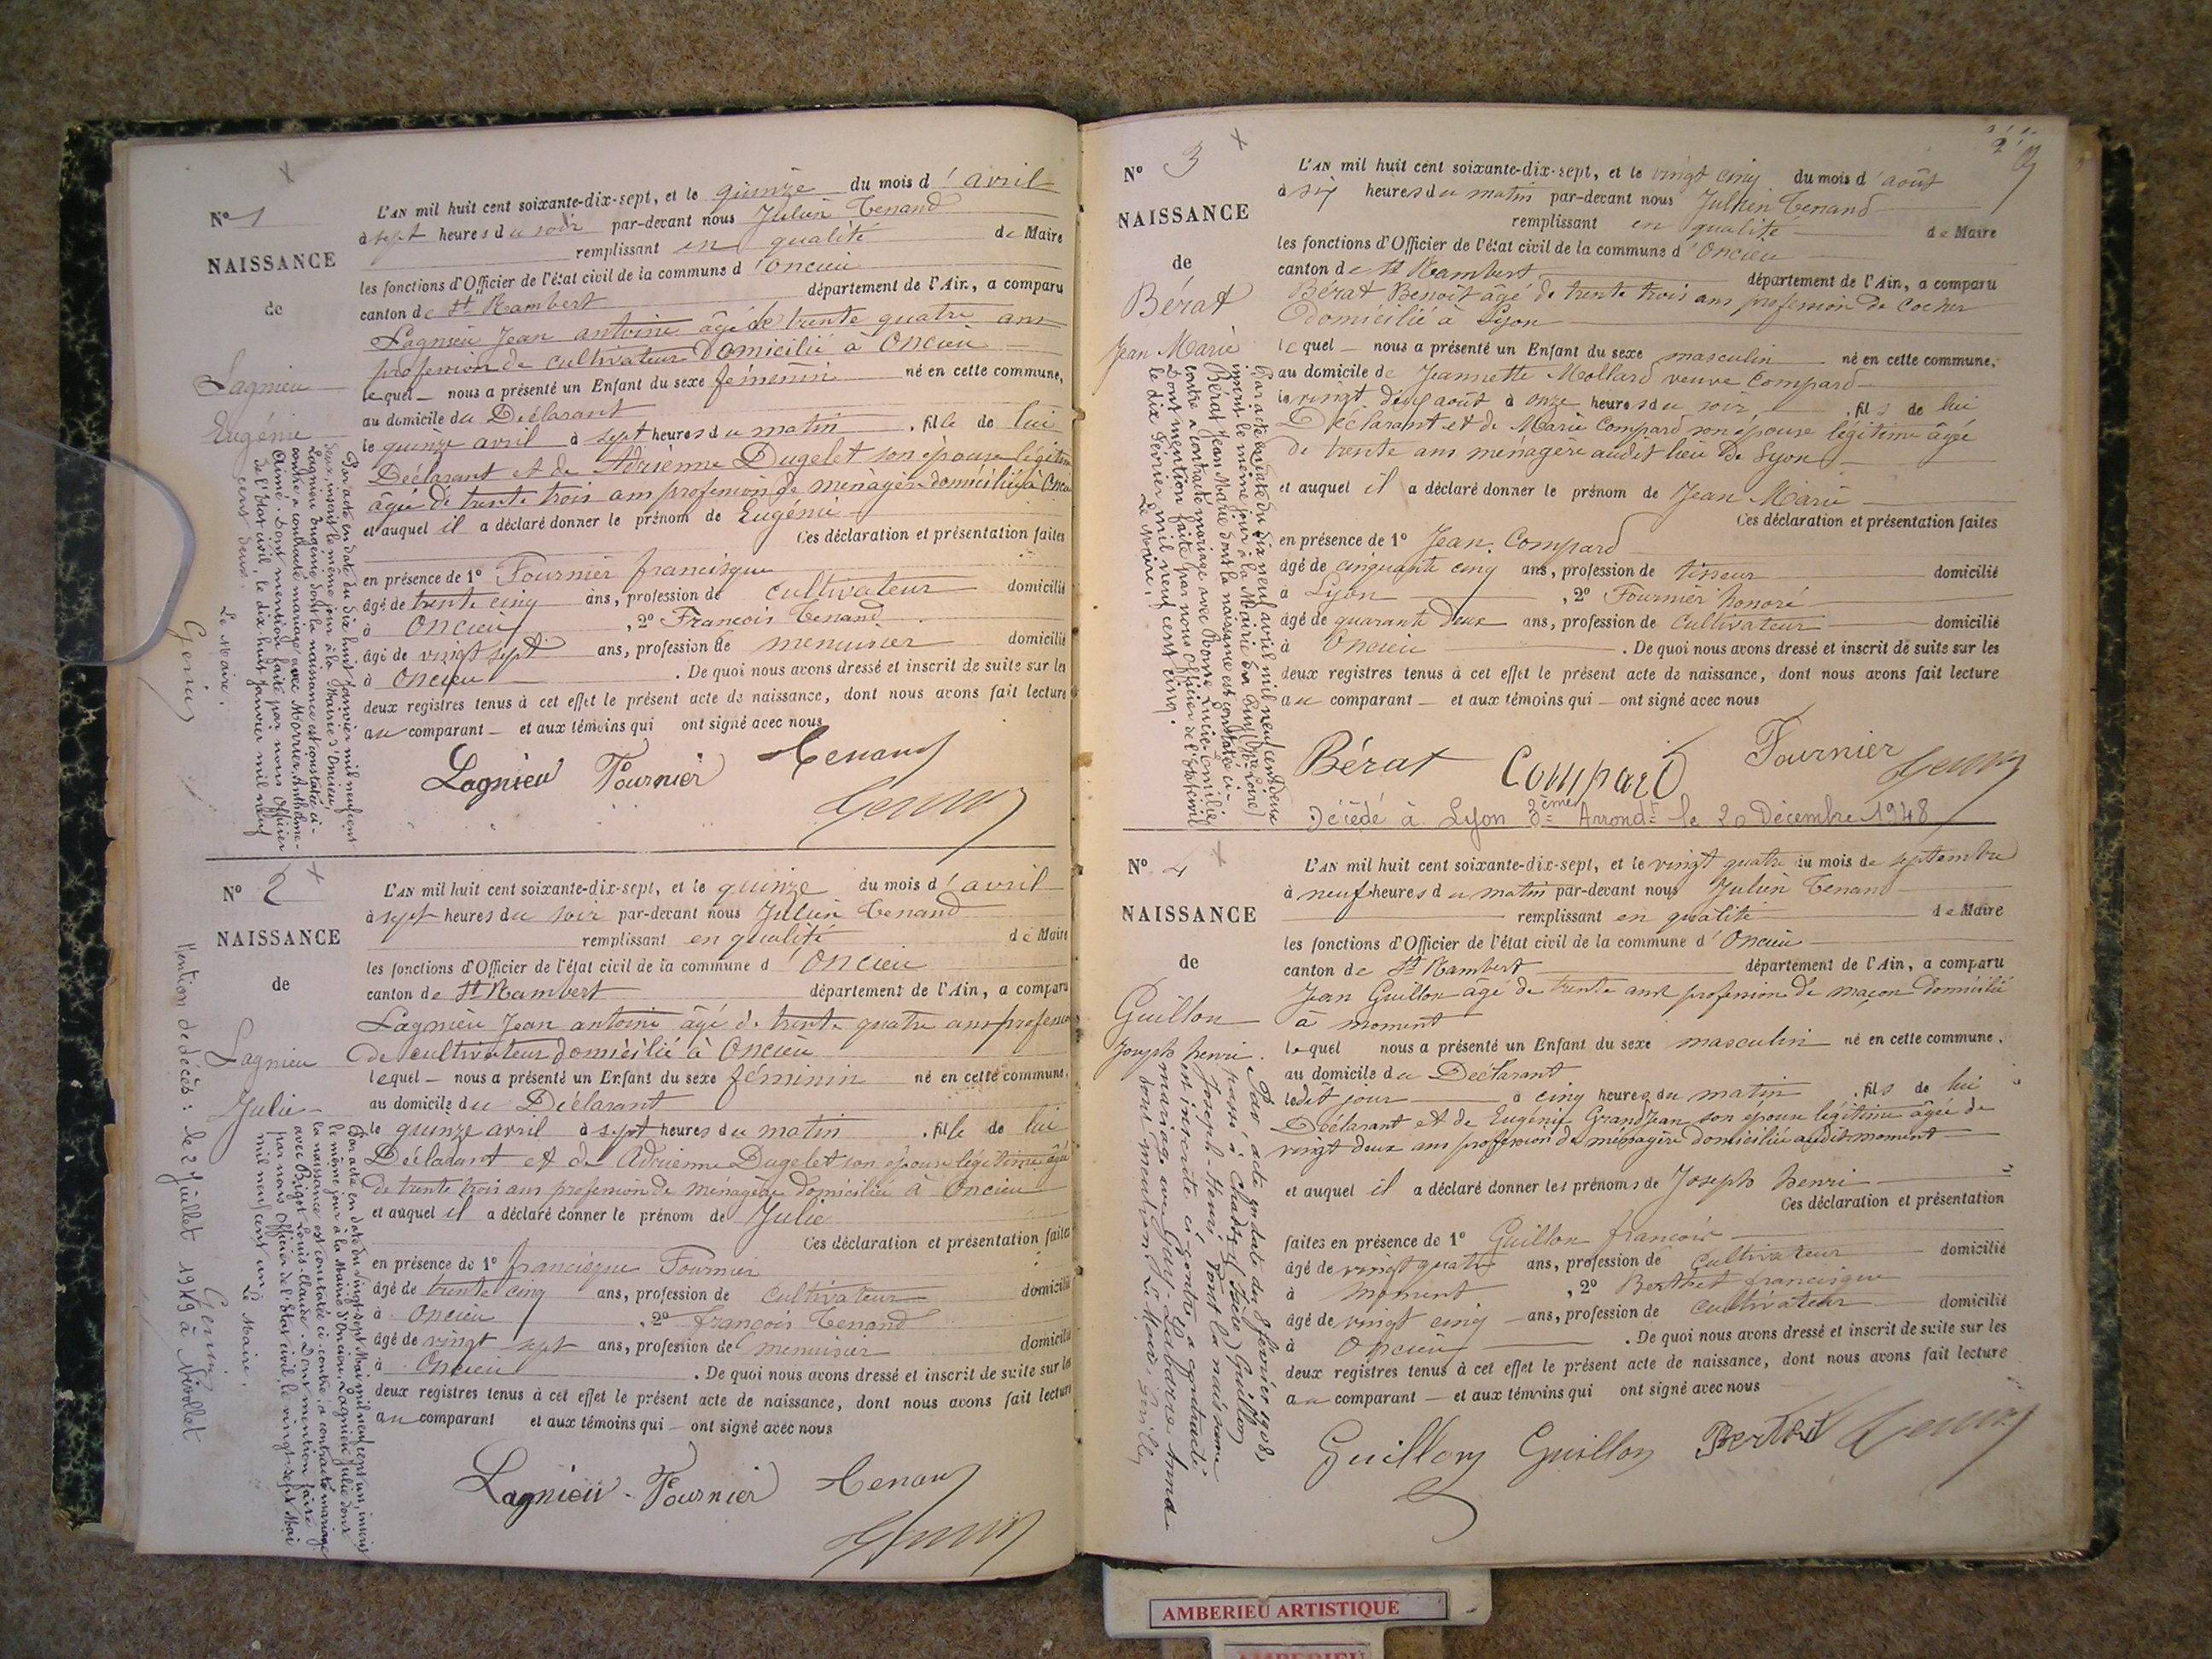 N° 1
NAISSANCE
de
Lagnieu
Eugénie
L'AN mil huit cent soixante-dix-sept, et le quinze du mois d'avril
à sept heures du soir par-devant nous Julien Tenand
remplissant en qualité de Maire
les fonctions d'Officier de l'état civil de la commune d'Oncieu
canton de St Rambert département de l'Ain, a comparu
Lagnieu Jean antoine âgé de trente quatre ans
profession de cultivateur domicilié à Oncieu
lequel nous a présenté un Enfant du sexe féminin né en cette commune,
au domicile du Déclarant
le quinze avril à sept heures du matin, fille de lui
Déclarant et de Adrienne Dugelet son épouse légitime
âgée de trente trois ans profession de ménagère domiciliée à Oncieu
et auquel il a déclaré donner le prénom de Eugénie
Ces déclaration et présentation faites
en présence de 1° Fournier francisque
âgé de trente cinq ans, profession de cultivateur domicilié
à Oncieu, 2° François Tenand
âgé de vingt sept ans, profession de menuisier domicilié
à Oncieu. De quoi nous avons dressé et inscrit de suite sur les
deux registres tenus à cet effet le présent acte de naissance, dont nous avons fait lecture
au comparant et aux témoins qui ont signé avec nous
Lagnieu Fournier Tenand
Par acte en date du dix huit janvier mil neuf cent
deux, inscrit le même jour à la Mairie d'Oncieu,
Lagnieu Eugénie dont la naissance est constatée ci-
contre a contracté mariage avec Morrier Anthelme-
Aimé. Dont mention faite par nous Officier
de l'Etat civil, le dix huit janvier mil neuf
cent deux.
Le Maire,
N° 2
NAISSANCE
de
Lagnieu
Julie
L'AN mil huit cent soixante-dix-sept, et le quinze du mois d'avril
à sept heures du soir par-devant nous Julien Tenand
remplissant en qualité de Maire
les fonctions d'Officier de l'état civil de la commune d'Oncieu
canton de St Rambert département de l'Ain, a comparu
Lagnieu Jean antoine âgé de trente quatre ans profession
de cultivateur domicilié à Oncieu
lequel nous a présenté un Enfant du sexe féminin né en cette commune,
au domicile du Déclarant
le quinze avril à sept heures du matin, fille de lui
Déclarant et de Adrienne Dugelet son épouse légitime âgée
de trente trois ans profession de ménagère domiciliée à Oncieu
et auquel il a déclaré donner le prénom de Julie
Ces déclaration et présentation faites
en présence de 1° francisque Fournier
âgé de trente cinq ans, profession de cultivateur domicilié
à Oncieu, 2° françois Tenand
âgé de vingt sept ans, profession de menuisier domicilié
à Oncieu. De quoi nous avons dressé et inscrit de suite sur les
deux registres tenus à cet effet le présent acte de naissance, dont nous avons fait lecture
au comparant et aux témoins qui ont signé avec nous
Lagnieu Fournier Tenand
Par acte en date du vingt-sept Mai mil neuf cent un, inscrit
le même jour à la Mairie d'Oncieu, Lagnieu Julie dont
la naissance est constatée ci-contre, a contracté mariage
avec Bigot Louis-Claude. Dont mention faite
par nous Officier de l'Etat civil, le vingt-sept Mai
mil neuf cent un.
Le Maire,
Mention de décès : le 2 Juillet 1949 à Nivollet
N° 3
NAISSANCE
de
Bérat
Jean Marie
L'AN mil huit cent soixante-dix-sept, et le vingt cinq du mois d'août
à six heures du matin par-devant nous Julien Tenand
remplissant en qualité de Maire
les fonctions d'Officier de l'état civil de la commune d'Oncieu
canton de St Rambert département de l'Ain, a comparu
Bérat Benoit âgé de trente trois ans profession de cocher
domicilié à Lyon
lequel nous a présenté un Enfant du sexe masculin né en cette commune,
au domicile de Jeannette Mollard veuve Compard
le vingt deux août à onze heures du soir, fils de lui
Déclarant et de Marie Compard son épouse légitime âgée
de trente ans ménagère audit lieu de Lyon
et auquel il a déclaré donner le prénom de Jean Marie
Ces déclaration et présentation faites
en présence de 1° Jean Compard
âgé de cinquante cinq ans, profession de tisseur domicilié
à Lyon, 2° Fournier honoré
âgé de quarante deux ans, profession de cultivateur domicilié
à Oncieu. De quoi nous avons dressé et inscrit de suite sur les
deux registres tenus à cet effet le présent acte de naissance, dont nous avons fait lecture
au comparant et aux témoins qui ont signé avec nous
Bérat Compard Fournier
Décédé à Lyon 3ème Arrondt le 20 Décembre 1948
Par acte en date du dix neuf avril mil neuf cent deux
inscrit le même jour à la Mairie
Bérat Jean Marie dont la naissance est constatée ci-
contre a contracté mariage avec
Dont mention faite par nous Officier de l'Etat civil
le dix février mil neuf cent cinq.
Le Maire,
N° 4
NAISSANCE
de
Guillon
Joseph henri
L'AN mil huit cent soixante-dix-sept, et le vingt quatre du mois de septembre
à neuf heures du matin par-devant nous Julien Tenand
remplissant en qualité de Maire
les fonctions d'Officier de l'état civil de la commune d'Oncieu
canton de St Rambert département de l'Ain, a comparu
Jean Guillon âgé de trente ans profession de maçon domicilié
à moment
lequel nous a présenté un Enfant du sexe masculin né en cette commune,
au domicile du Déclarant
ledit jour à cinq heures du matin, fils de lui
Déclarant et de Eugénie Grandjean son épouse légitime âgée de
vingt deux ans profession de ménagère domiciliée audit moment
et auquel il a déclaré donner les prénoms de Joseph henri
Ces déclaration et présentation
faites en présence de 1° Guillon françois
âgé de vingt quatre ans, profession de cultivateur domicilié
à moment, 2° Berthet francisque
âgé de vingt cinq ans, profession de cultivateur domicilié
à Oncieu. De quoi nous avons dressé et inscrit de suite sur les
deux registres tenus à cet effet le présent acte de naissance, dont nous avons fait lecture
au comparant et aux témoins qui ont signé avec nous
Guillon Guillon Berthet
Par acte en date du 8 février 1908,
passé à (Isère) Guillon
Joseph-Henri, dont la naissance
est inscrite ci-contre a contracté
mariage avec
dont mention Le Maire
AMBERIEU ARTISTIQUE
AMBERIEU